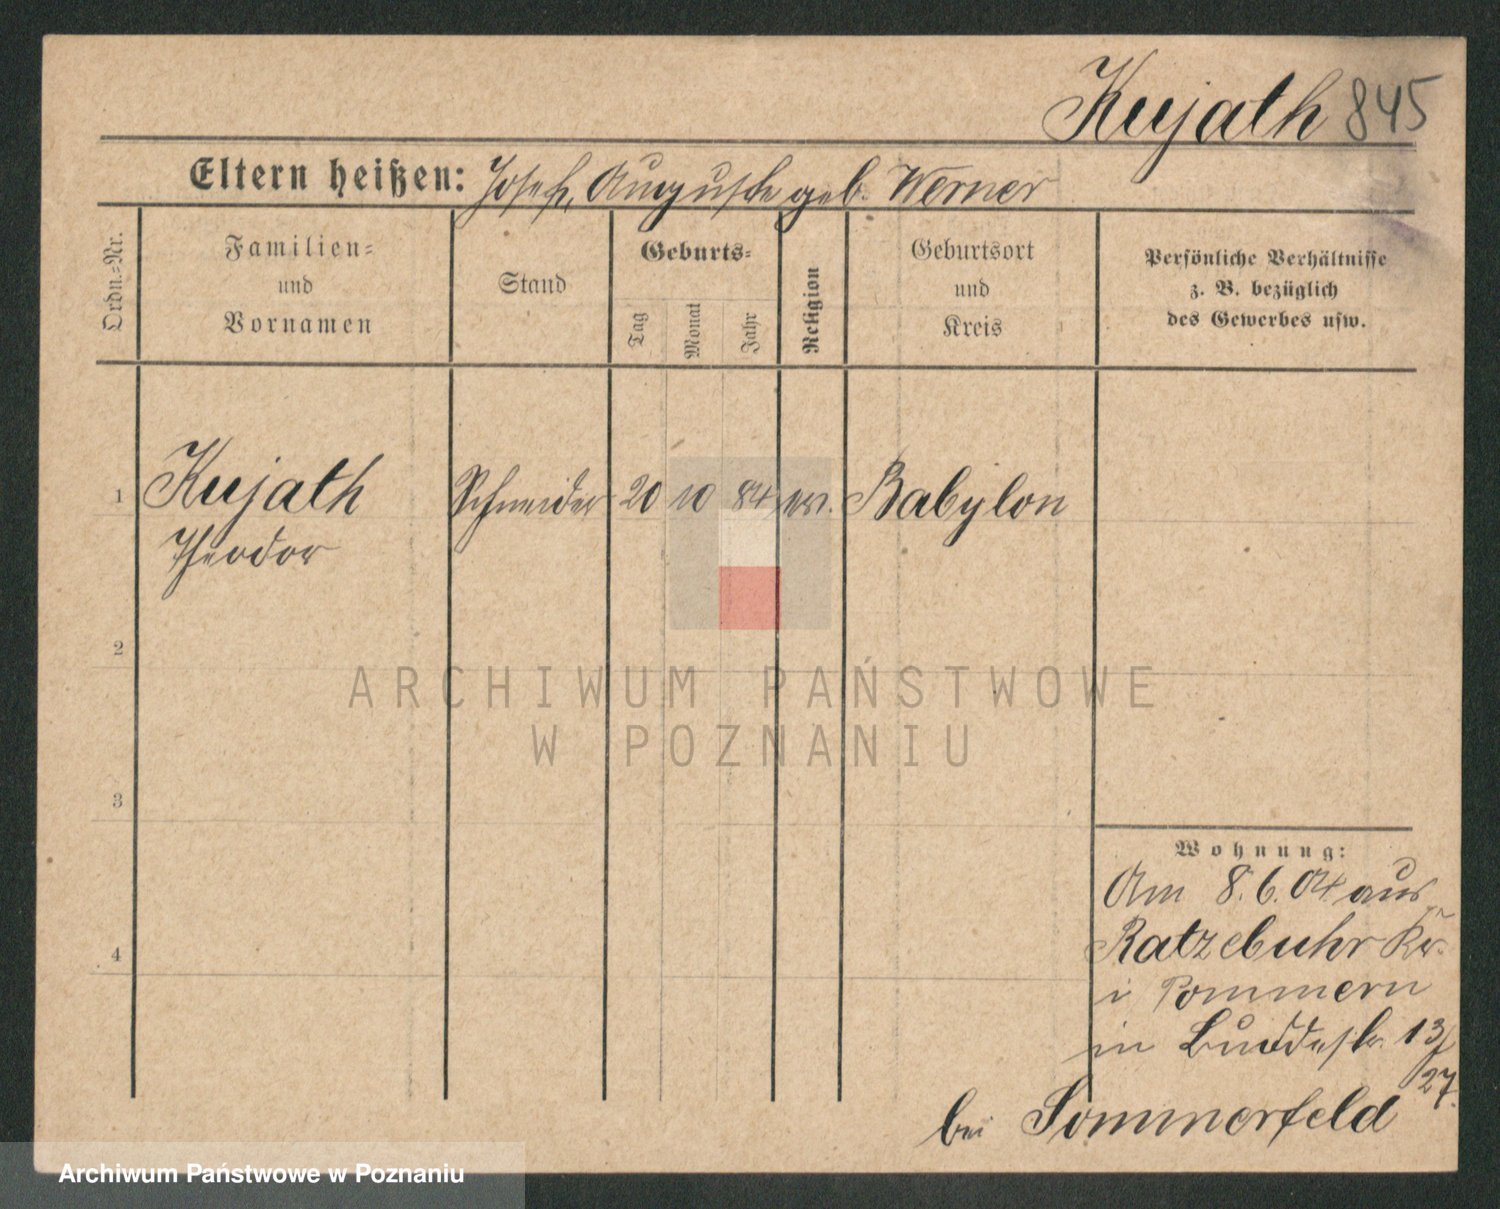 Kujath 845
Eltern heißen: Josef, Auguste geb. Werner
Ordn.=Nr.
Familien=
und
Vornamen
Stand
Geburts=
Tag
Monat
Jahr
Religion
Geburtsort
und
Kreis
Persönliche Verhältnisse
z. B. bezüglich
des Gewerbes usw.
1
Kujath
Theodor
Schneider
20
10
84
ev.
Babylon
2
3
4
ARCHIWUM PAŃSTWOWE
W POZNANIU
Wohnung:
Am 8.6.04 aus
Ratzebuhr Kr.
i Pommern
in 13/
27.
bei Sommerfeld
Archiwum Państwowe w Poznaniu